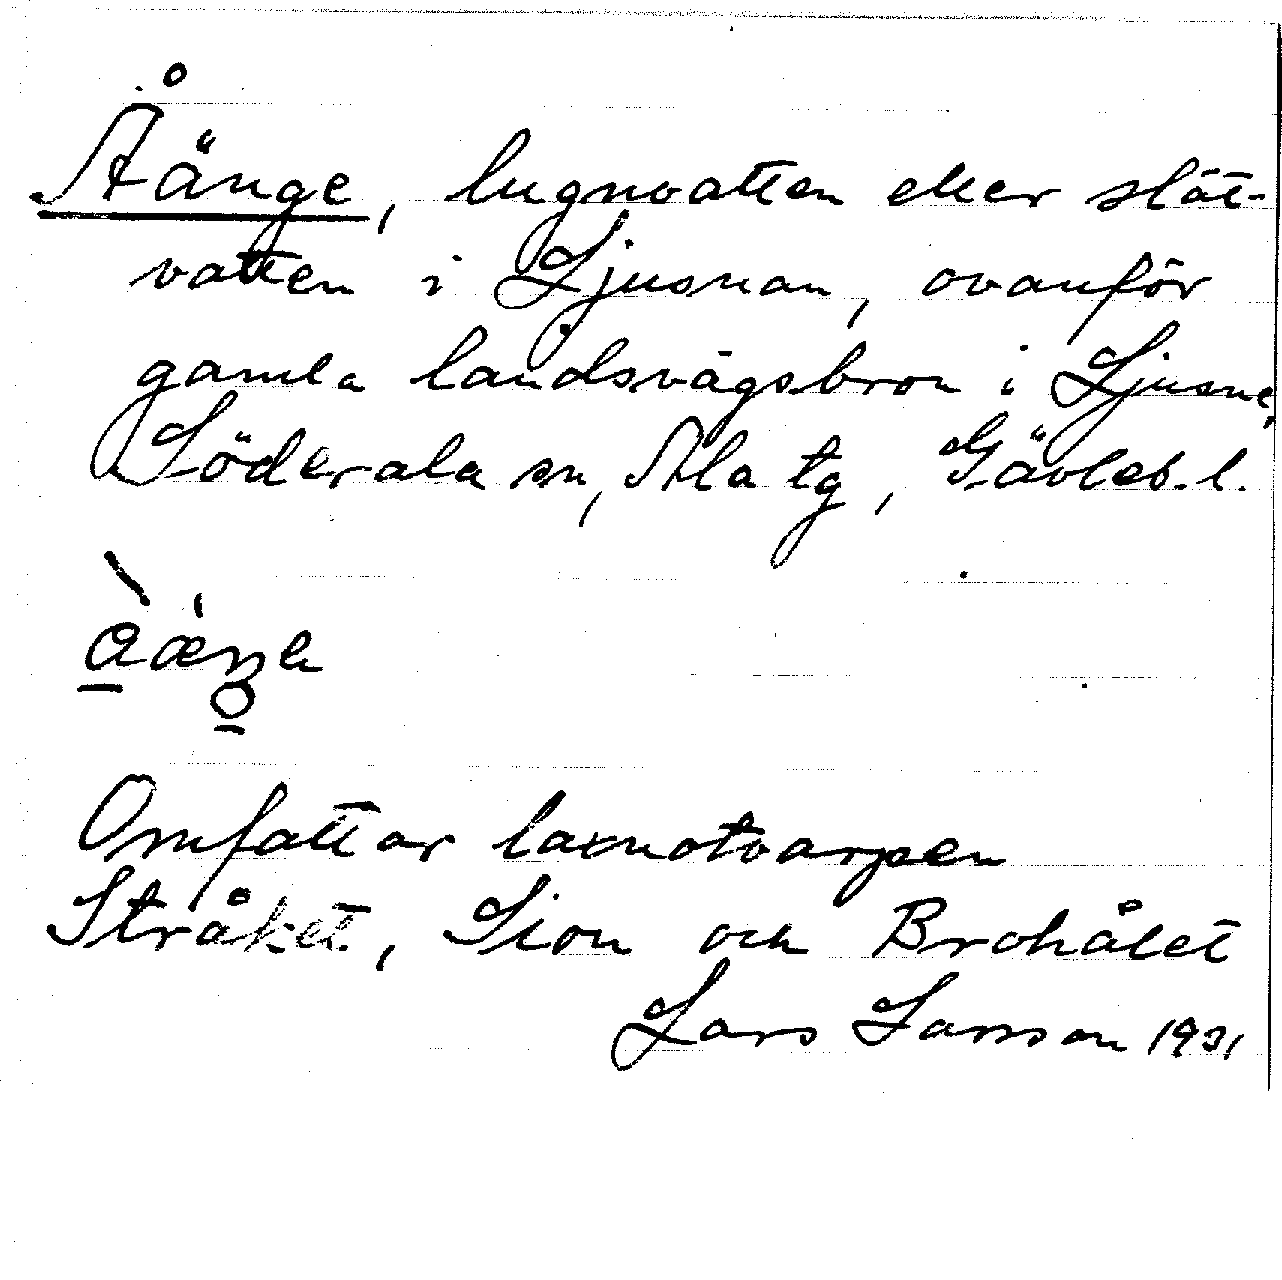 Åänge, lugnvatten eller slät-
vatten i Ljusnan, ovanför
gamla landsvägsbron i Ljusne,
Söderala sn, Ala tg, Gävleb. l.
Omfattar laxnotvarpen
Stråket, Sion och Brohålet
Lars Larsson 1931